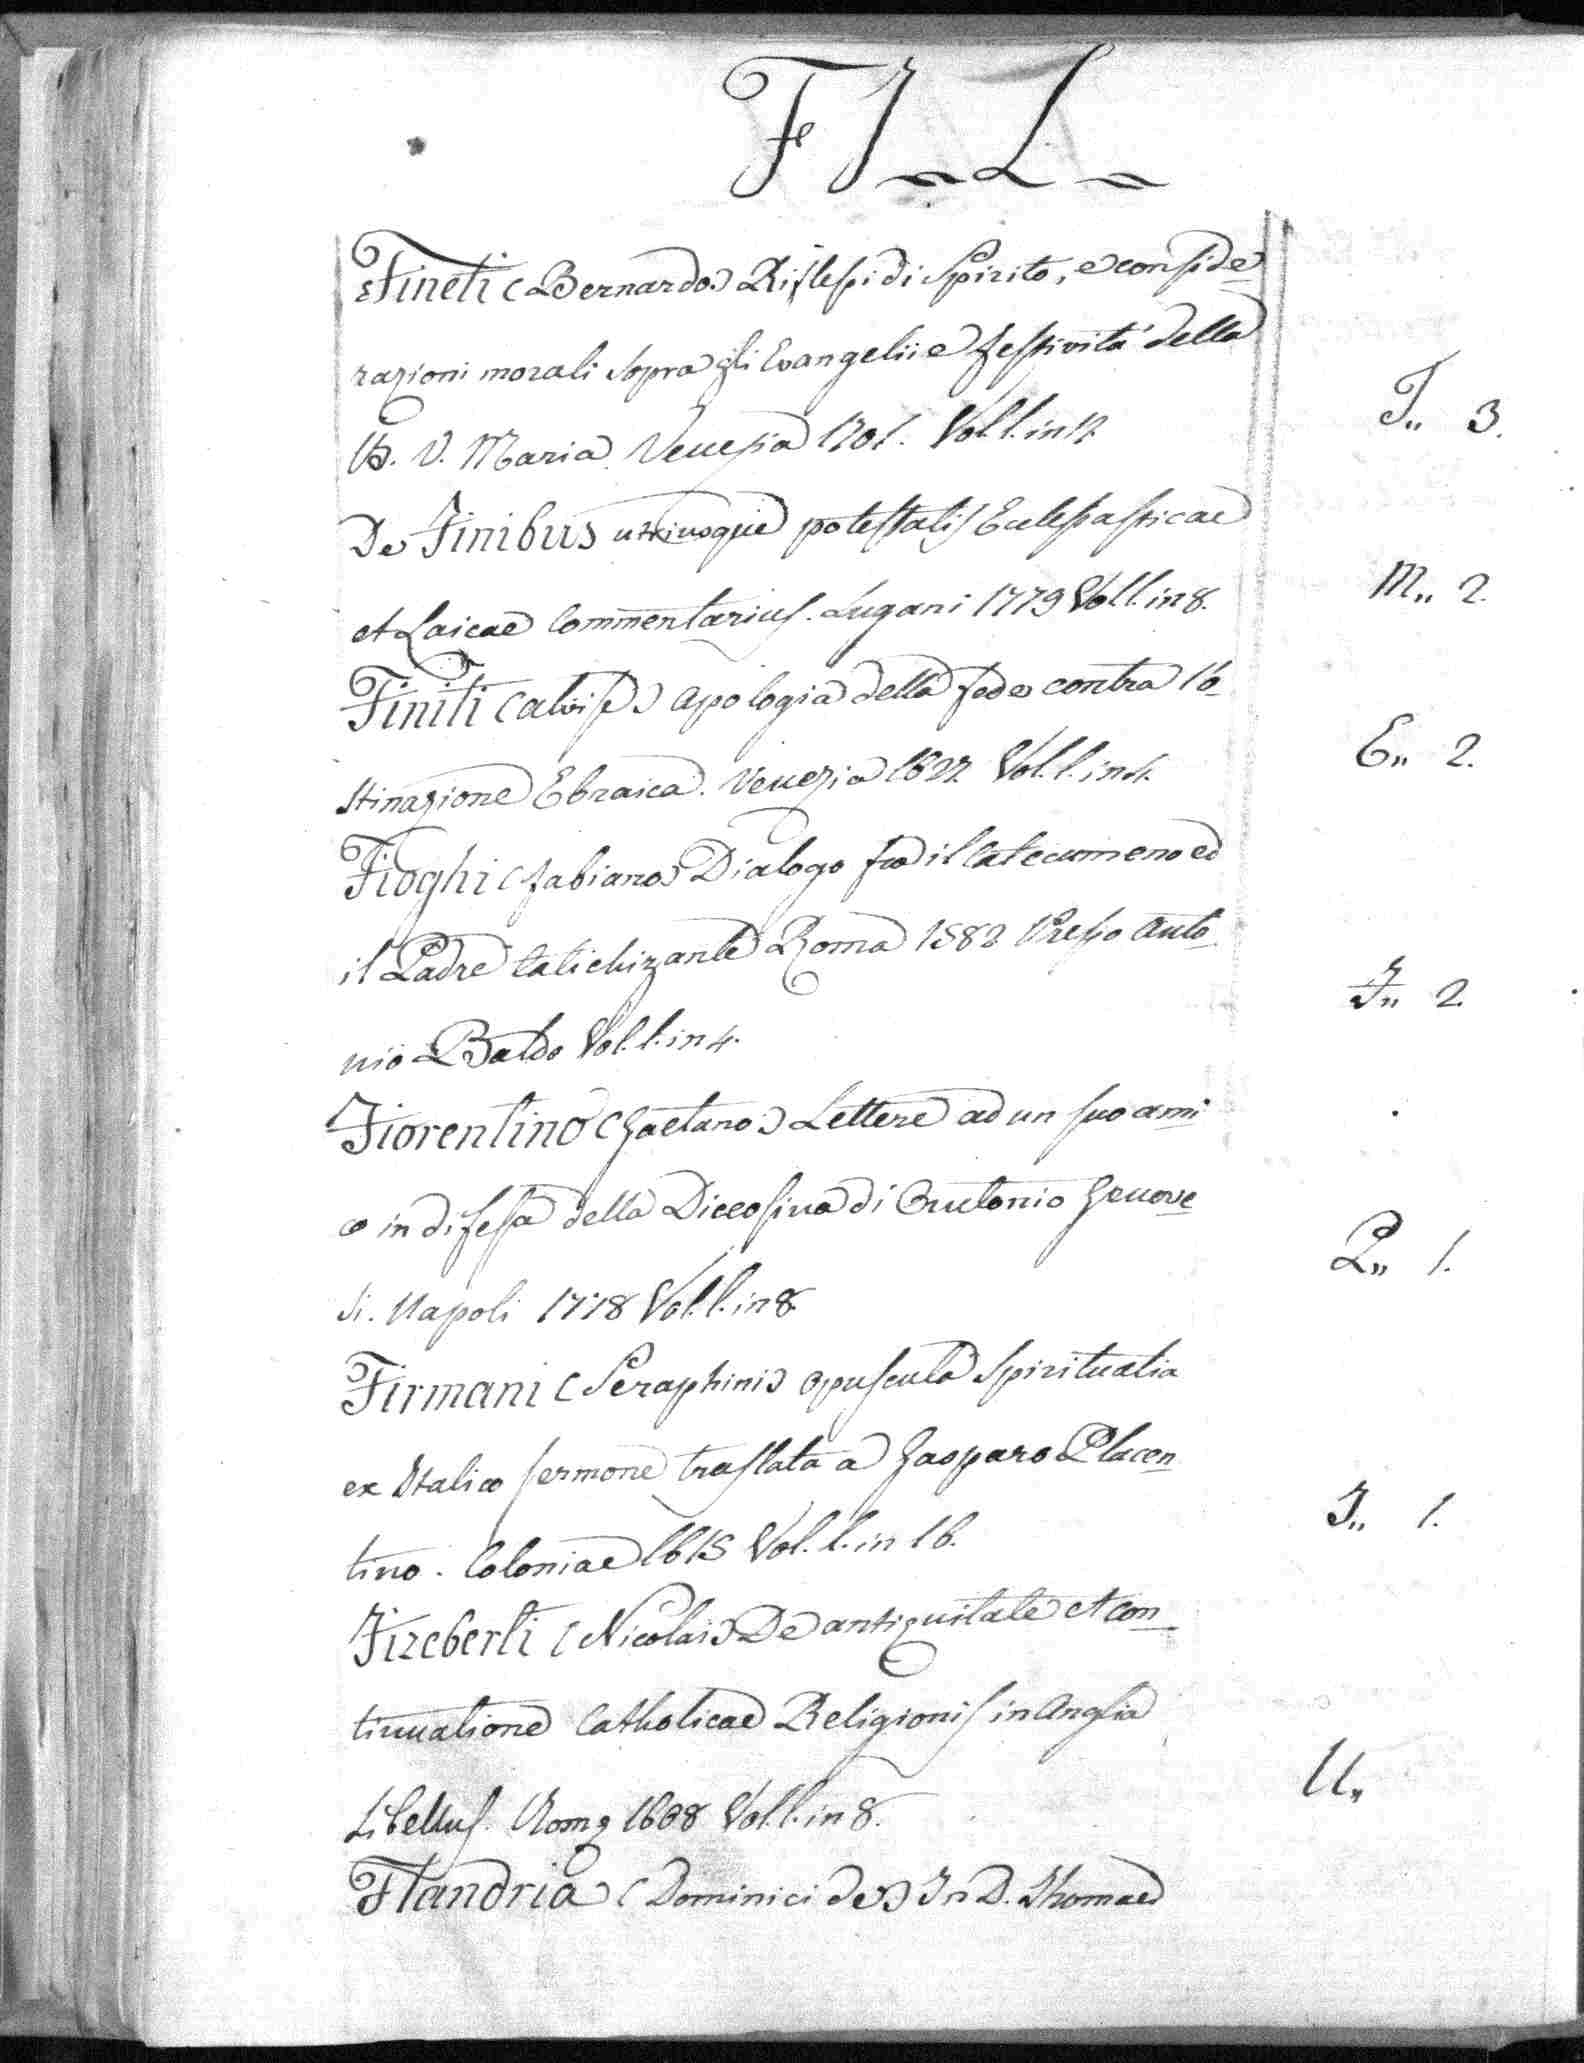 F I „ L „
Fineti (Bernardo) Riflessi di Spirito, e conside
razioni morali sopra gli Evangelii e festività della
B. V. Maria. Venezia 1701. Vol. 1. in 12. T„ 3.
De Finibus utriusque potestatis Ecclesiasticae
et Laicae Commentarius. Lugani 1779 Vol. 1. in 8. M„ 2.
Finiti (Alvise) Apologia della fede contra l'o
stinazione Ebraica. Venezia 1627. Vol. 1. in 4. E„ 2.
Fioghi (Fabiano) Dialogo fra il Catecumeno ed
il Padre Catichizante Roma 1582 Presso Anto
nio Baldo Vol. 1. in 4. F„ 2.
Fiorentino (Gaetano) Lettere ad un suo ami
co in difesa della Diceosina di Antonio Genove
si. Napoli 1778 Vol. 1. in 8. P„ 1.
Firmani (Seraphini) Opuscula Spiritualia
ex Italico sermone traslata a Gasparo Placen
tino. Coloniae 1615 Vol. 1. in 16. I„ 1.
Fizeberti (Nicolai) De antiquitate et con
tinuatione Catholicae Religionis in Anglia
Libellus. Romę 1608 Vol. 1. in 8. U„
Flandria (Dominici de) In D. Thomae